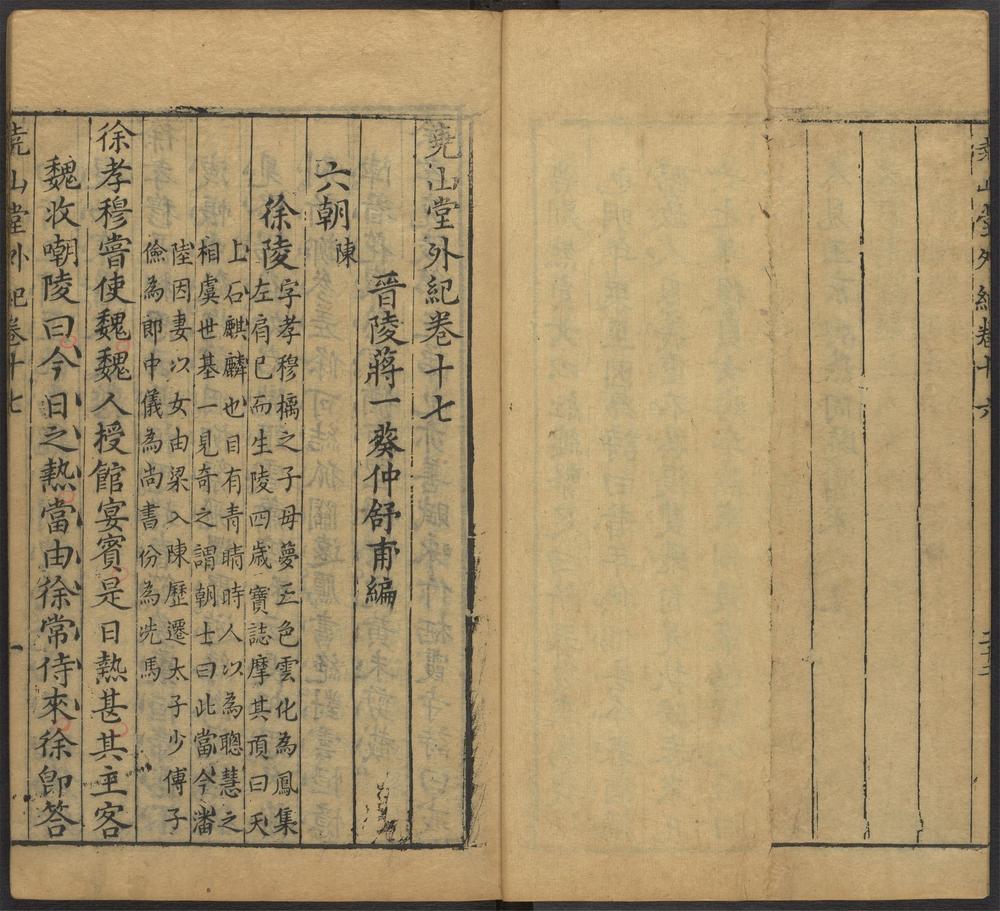 堯山堂外紀卷十六
堯山堂外紀卷十七
晉陵蔣一葵仲舒甫編
六朝
陳
徐陵
字孝穆摛之子母夢五色雲化為鳳集
左肩已而生陵四歲寶誌摩其頂曰天
上石麒麟也目有青睛時人以為聰慧之
相虞世基一見奇之謂朝士曰此當今潘
陸因妻以女由梁入陳歷遷太子少傅子
儉為郎中儀為尚書份為洗馬
徐孝穆嘗使魏魏人授館宴賓是日熱甚其主客
魏收嘲陵曰今日之熱當由徐常侍來徐卽答
堯山堂外紀卷十七
一